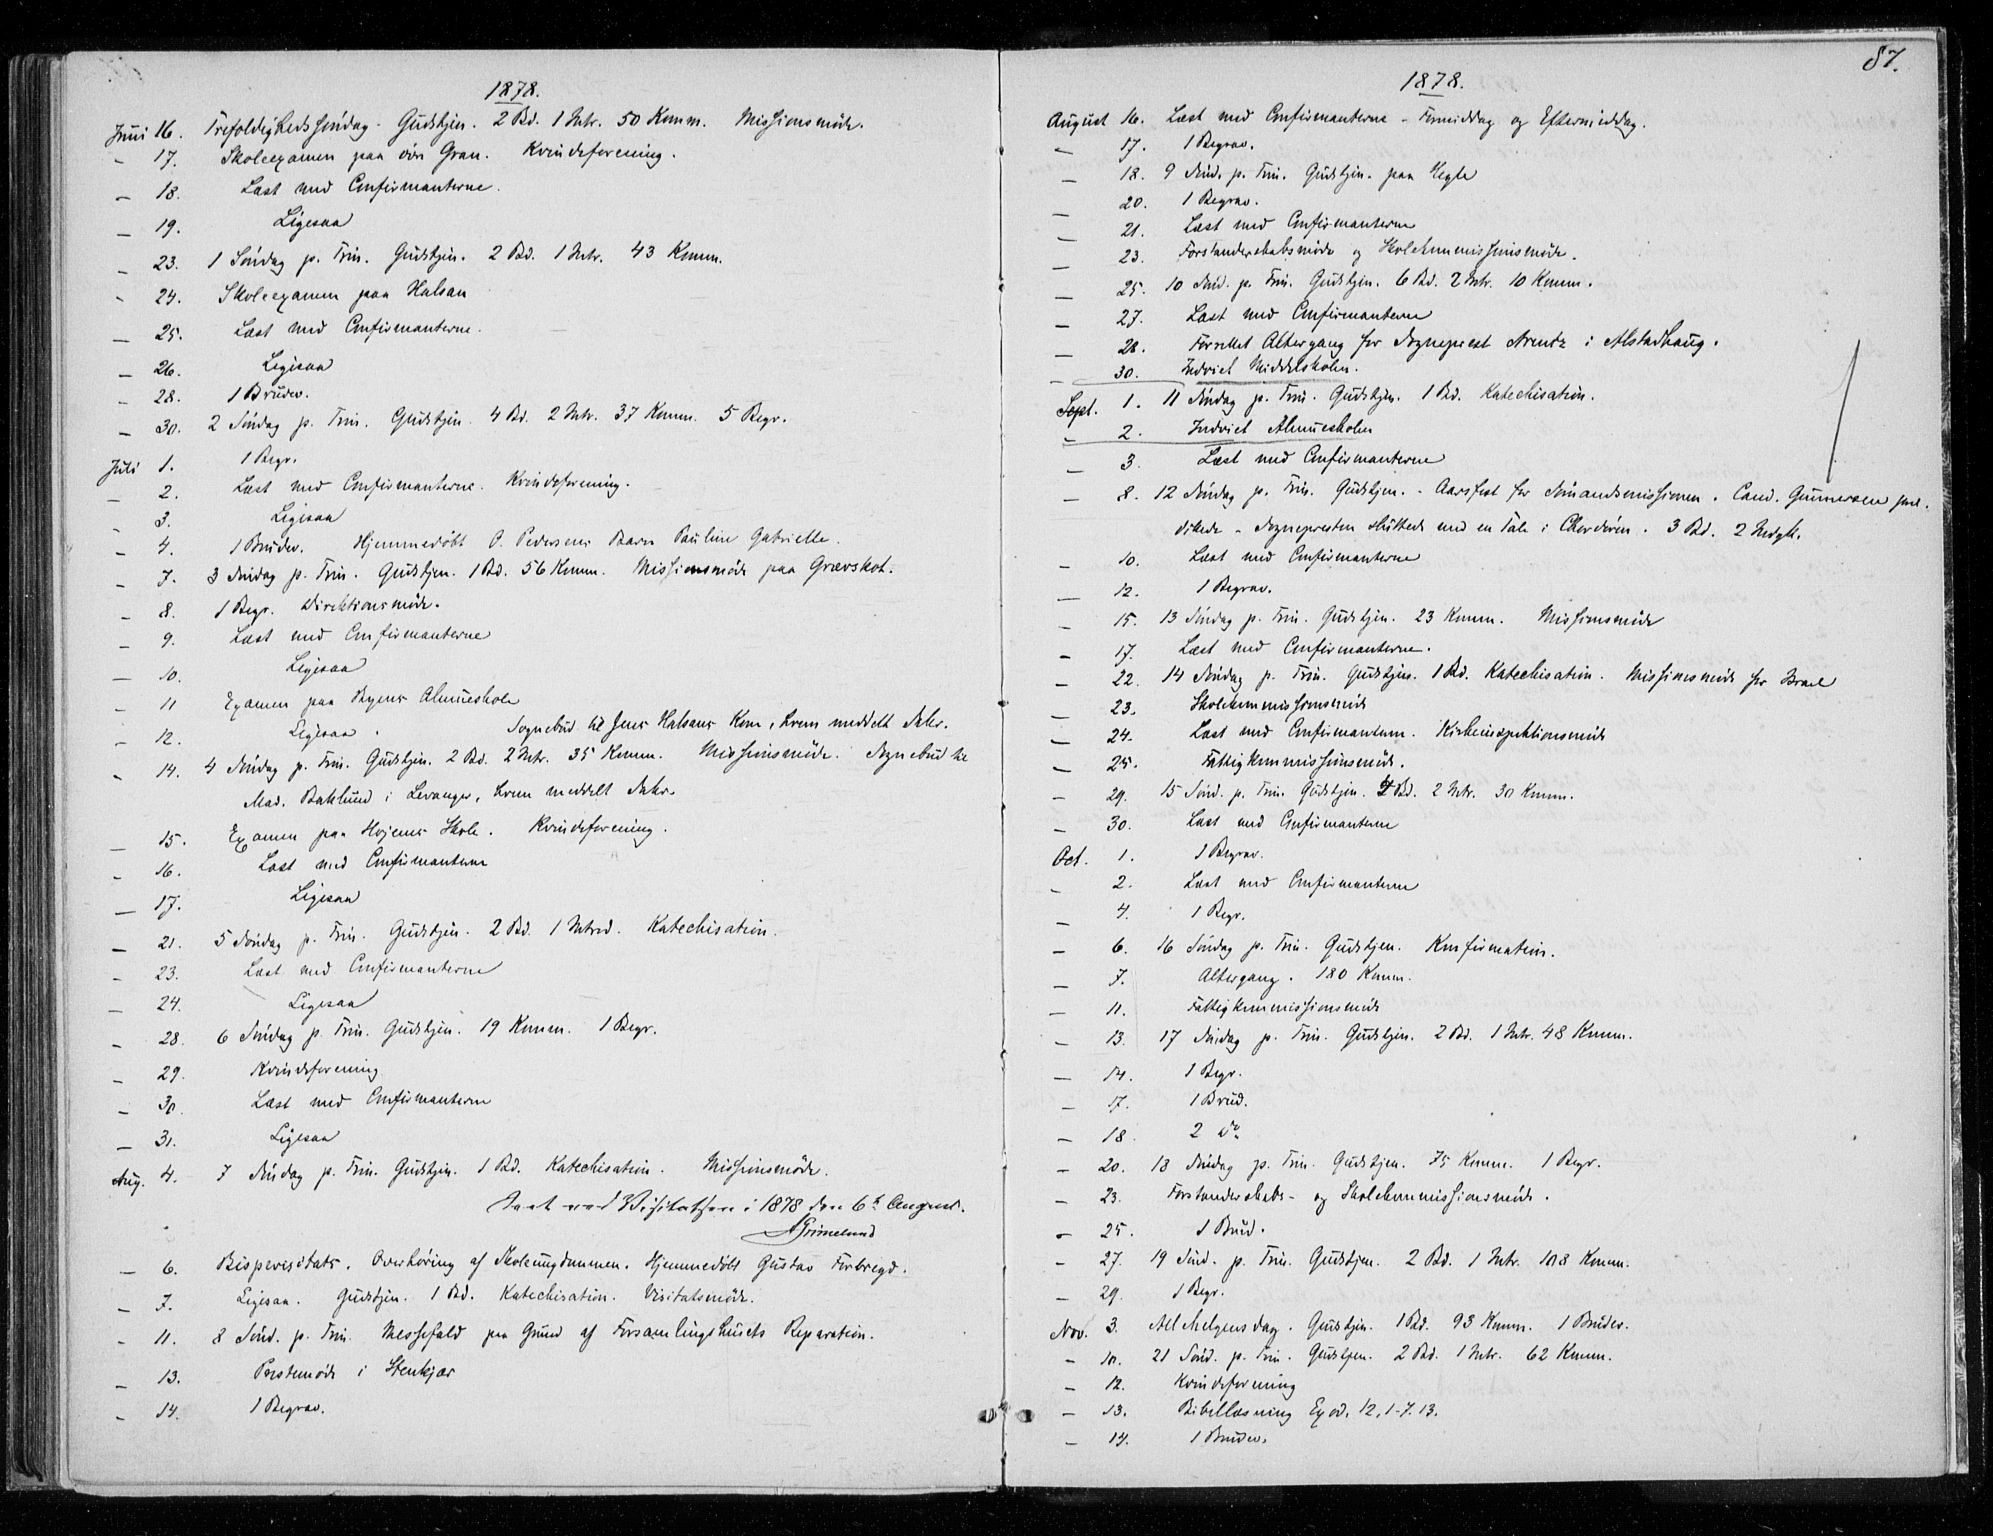 1878.
Juni 16. Trefoldighedssöndag. Gudstjen. 2 Bd. 1 Intr. 50 Komm. Missionsmöde.
– 17. Skoleexamen paa övr Gran. Kvindeforening.
– 18. Læst med Confirmanterne.
– 19. Ligesaa
– 23. 1 Söndag p. Trin. Gudstjen. 2 Bd. 1 Intr. 43 Komm.
– 24. Skoleexamen paa Halsan
– 25. Læst med Confirmanterne.
– 26. Ligesaa
– 28. 1 Brudev.
– 30. 2 Söndag p. Trin. Gudstjen. 4 Bd. 2 Intr. 37 Komm. 5 Begr.
Juli 1. 1 Begr.
– 2. Læst med Confirmanterne. Kvindeforening.
– 3. Ligesaa
– 4. 1 Brudev. Hjemmedöbt P. Pedersens Barn Pauline Gabrielle.
– 7. 3 Söndag p. Trin. Gudstjen. 1 Bd. 56 Komm. Missionsmöde paa Grævskot.
– 8. 1 Begr. Direktionsmöde.
– 9. Læst med Confirmanterne
– 10. Ligesaa
– 11 Examen paa Byens Almueskole
– 12. Ligesaa. Sognebud til Jens Halsans Kone, hvem meddelt Sakr.
– 14. 4 Söndag p. Trin. Gudstjen. 2 Bd. 2 Intr. 35 Komm. Missionsmöde. Sognebud til
Mad. Baklund i Levanger, hvem meddelt Sakr.
– 15. Examen paa Hojems Skole. Kvindeforening.
– 16. Læst med Confirmanterne
– 17. Ligesaa
– 21. 5 Söndag p. Trin. Gudstjen. 2 Bd. 1 Introd. Katechisation.
– 23. Læst med Confirmanterne
– 24. Ligesaa
– 28. 6 Söndag p. Trin. Gudstjen. 19 Komm. 1 Begr.
– 29. Kvindeforening
– 30 Læst med Confirmanterne
– 31. Ligesaa
Aug. 4. 7 Söndag p. Trin. Gudstjen. 1 Bd. Katechisation. Missionsmöde.
Seet ved Visitatsen i 1878 den 6te August.
AGrimelund
– 6. Bispevisitats. Overhöring af Skoleungdommen. Hjemmedöbt Gustav Forbregd.
– 7. Ligesaa. Gudstjen. 1 Bd. Katechisation. Visitatsmöde.
– 11. 8 Sönd. p. Trin. Messefald paa Grund af Forsamlingshusets Reparation.
– 13. Prestemöde i Stenkjær
– 14. 1 Begrav.
87.
1878.
August 16. Læst med Confirmanterne – Formiddag og Eftermiddag.
– 17. 1 Begrav.
– 18. 9 Sönd. p. Trin. Gudstjen. paa Hegle
– 20. 1 Begrav.
– 21. Læst med Confirmanterne
– 23. Forstanderskabsmöde og Skolekommissionsmöde.
– 25. 10 Sönd. p. Trin. Gudstjen. 6 Bd. 2 Intr. 10 Komm.
– 27. Læst med Confirmanterne
– 28. Forrettet Altergang for Sogneprest Arentz i Alstadhaug.
– 30. Indviet Middelskolen.
Sept. 1. 11 Söndag p. Trin. Gudstjen. 1 Bd. Katechisation.
– 2. Indviet Almueskolen
– 3. Læst med Confirmanterne
– 8. 12 Söndag p. Trin. Gudstjen. – Aarsfest for Sömandsmissionen. Cand. Gunnersen præ-
dikede – Sognepresten sluttede med en Tale i Chordören. 3 Bd. 2 Indgk.
– 10. Læst med Confirmanterne
– 12. 1 Begrav.
– 15. 13 Söndag p. Trin. Gudstjen. 23 Komm. Missionsmöde
– 17. Læst med Confirmanterne.
– 22. 14 Söndag p. Trin. Gudstjen. 1 Bd. Katechisation. Missionsmöde for Israel
– 23. Skolekommissionsmöde
– 24. Læst med Confirmantern. Kirkeinspektionsmöde
– 25. Fattigkommissionsmöde.
– 29. 15 Sönd. p. Trin. Gudstjen. Bd. 2 Intr. 30 Komm.
– 30. Læst med Confirmanterne
Oct. 1. 1 Begrav.
– 2. Læst med Confirmanterne
– 4. 1 Begr.
– 6. 16 Söndag p. Trin. Gudstjen. Konfirmation.
– 7. Altergang. 180 Komm.
– 11. Fattigkommissionsmöde
– 13. 17 Söndag p. Trin. Gudstjen. 2 Bd. 1 Intr. 48 Komm.
– 14. 1 Begr.
– 17. 1 Brud.
– 18. 2 do
– 20. 18 Söndag p. Trin. Gudstjen. 75 Komm. 1 Begr.
– 23. Forstanderskabs- og Skolekommissionsmöde.
– 25. 1 Brud.
– 27. 19 Sönd. p. Trin. Gudstjen. 2 Bd. 1 Intr. 108 Komm.
– 29. 1 Begr.
Nov. 3. Allehelgensdag. Gudstjen. 1 Bd. 93 Komm. 1 Brudev.
– 10. 21 Sönd. p. Trin. Gudstjen. 2 Bd. 1 Intr. 62 Komm.
– 12. Kvindeforening
– 13. Bibellæsning Exod. 12, 1-7. 13.
– 14. 1 Brudev.